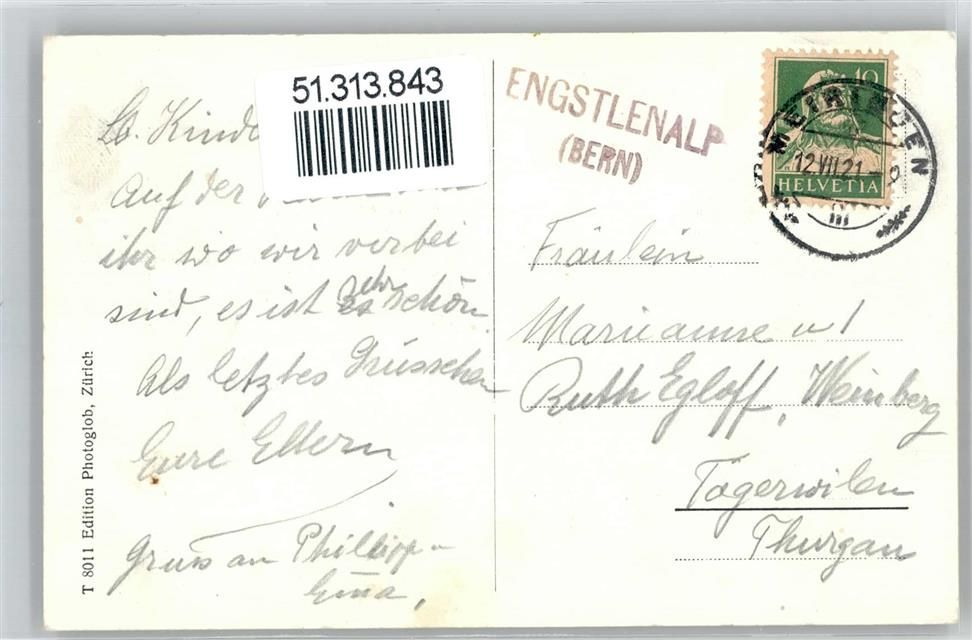 51.313.843
Lb. Kinder
Auf der
ihr wo wir vorbei
sind, es ist sehr schön
Als letztes Grüsschen
Eure Eltern
Gruss an Philipp u
T 8011 Edition Photoglob, Zürich
ENGSTLENALP
(BERN)
10
HELVETIA
MEIRINGEN
12.VII.21
III
Fräulein
Marianne u
Ruth Egloff, Weinberg
Tägerwilen
Thurgau